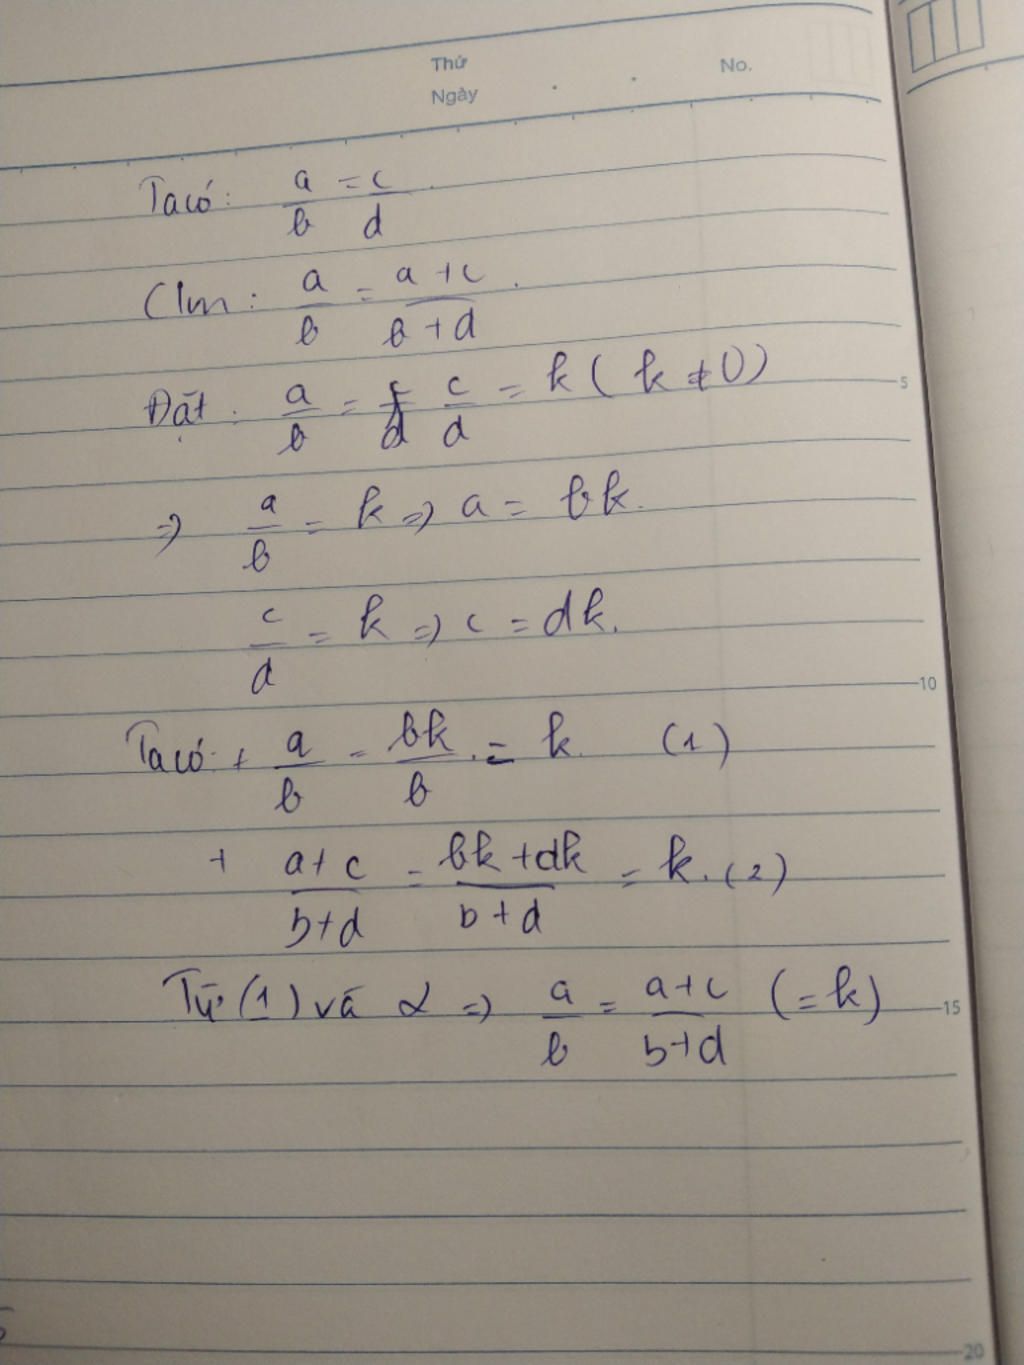 Thứ
Ngày
No.
Ta có: a/b = c/d
Clm: a/b = a+c/b+d.
Đặt: a/b = c/d = k (k ≠ 0)
5
=> a/b = k => a = bk.
c/d = k => c = dk.
10
Ta có: + a/b = bk/b = k. (1)
+ a+c/b+d = bk+dk/b+d = k. (2)
Từ (1) và 2 => a/b = a+c/b+d (= k)
15
20